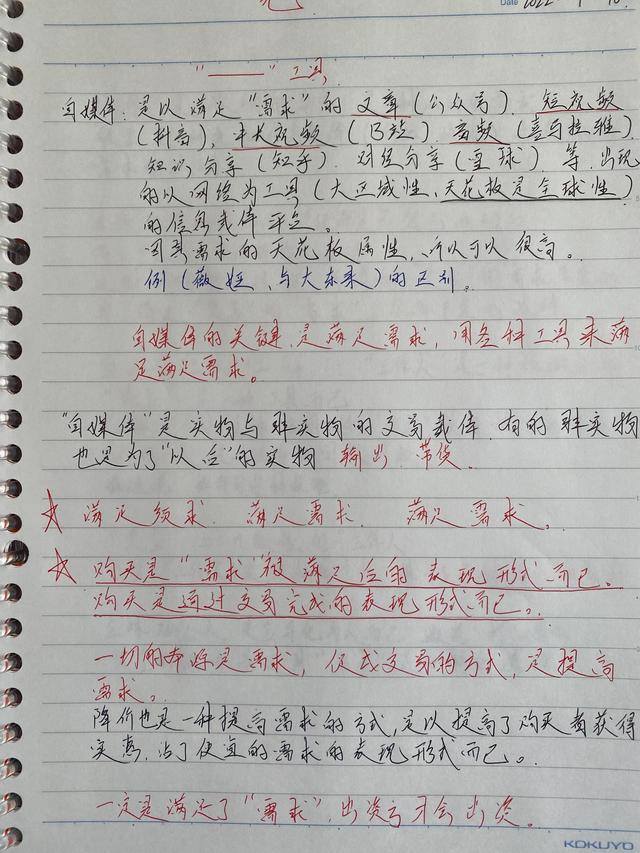 Date 2022
"——" 工具
自媒体: 是以满足"需求"的 文章(公众号). 短视频
(抖音), 中长视频 (B站). 音频 (喜马拉雅)
知识分享(知乎). 财经分享(雪球). 等. 出现
的以网络为工具 (大区域性、天花板是全球性)
的信息载体平台。
因其需求的天花板属性, 所以可以很高。
例 (薇娅、与大东家) 的区别。
自媒体的关键, 是满足需求, 用各种工具来满
足满足需求。
"自媒体"是实物与非实物的交易载体. 有的非实物
也是为了"以后"的实物 输出. 带货.
☆ 满足须求. 满足需求. 满足需求。
☆ 购买是"需求"被满足后的表现形式而已。
购买是通过交易完成的表现形式而已。
一切的本源是需求, 促成交易的方式, 是提高
需求。
降价也是一种提高需求的方式, 是以提高了购买者获得
实惠, 沾了便宜的需求的表现形式而已。
一定是满足了"需求", 出资方才会出资。
KOKUYO